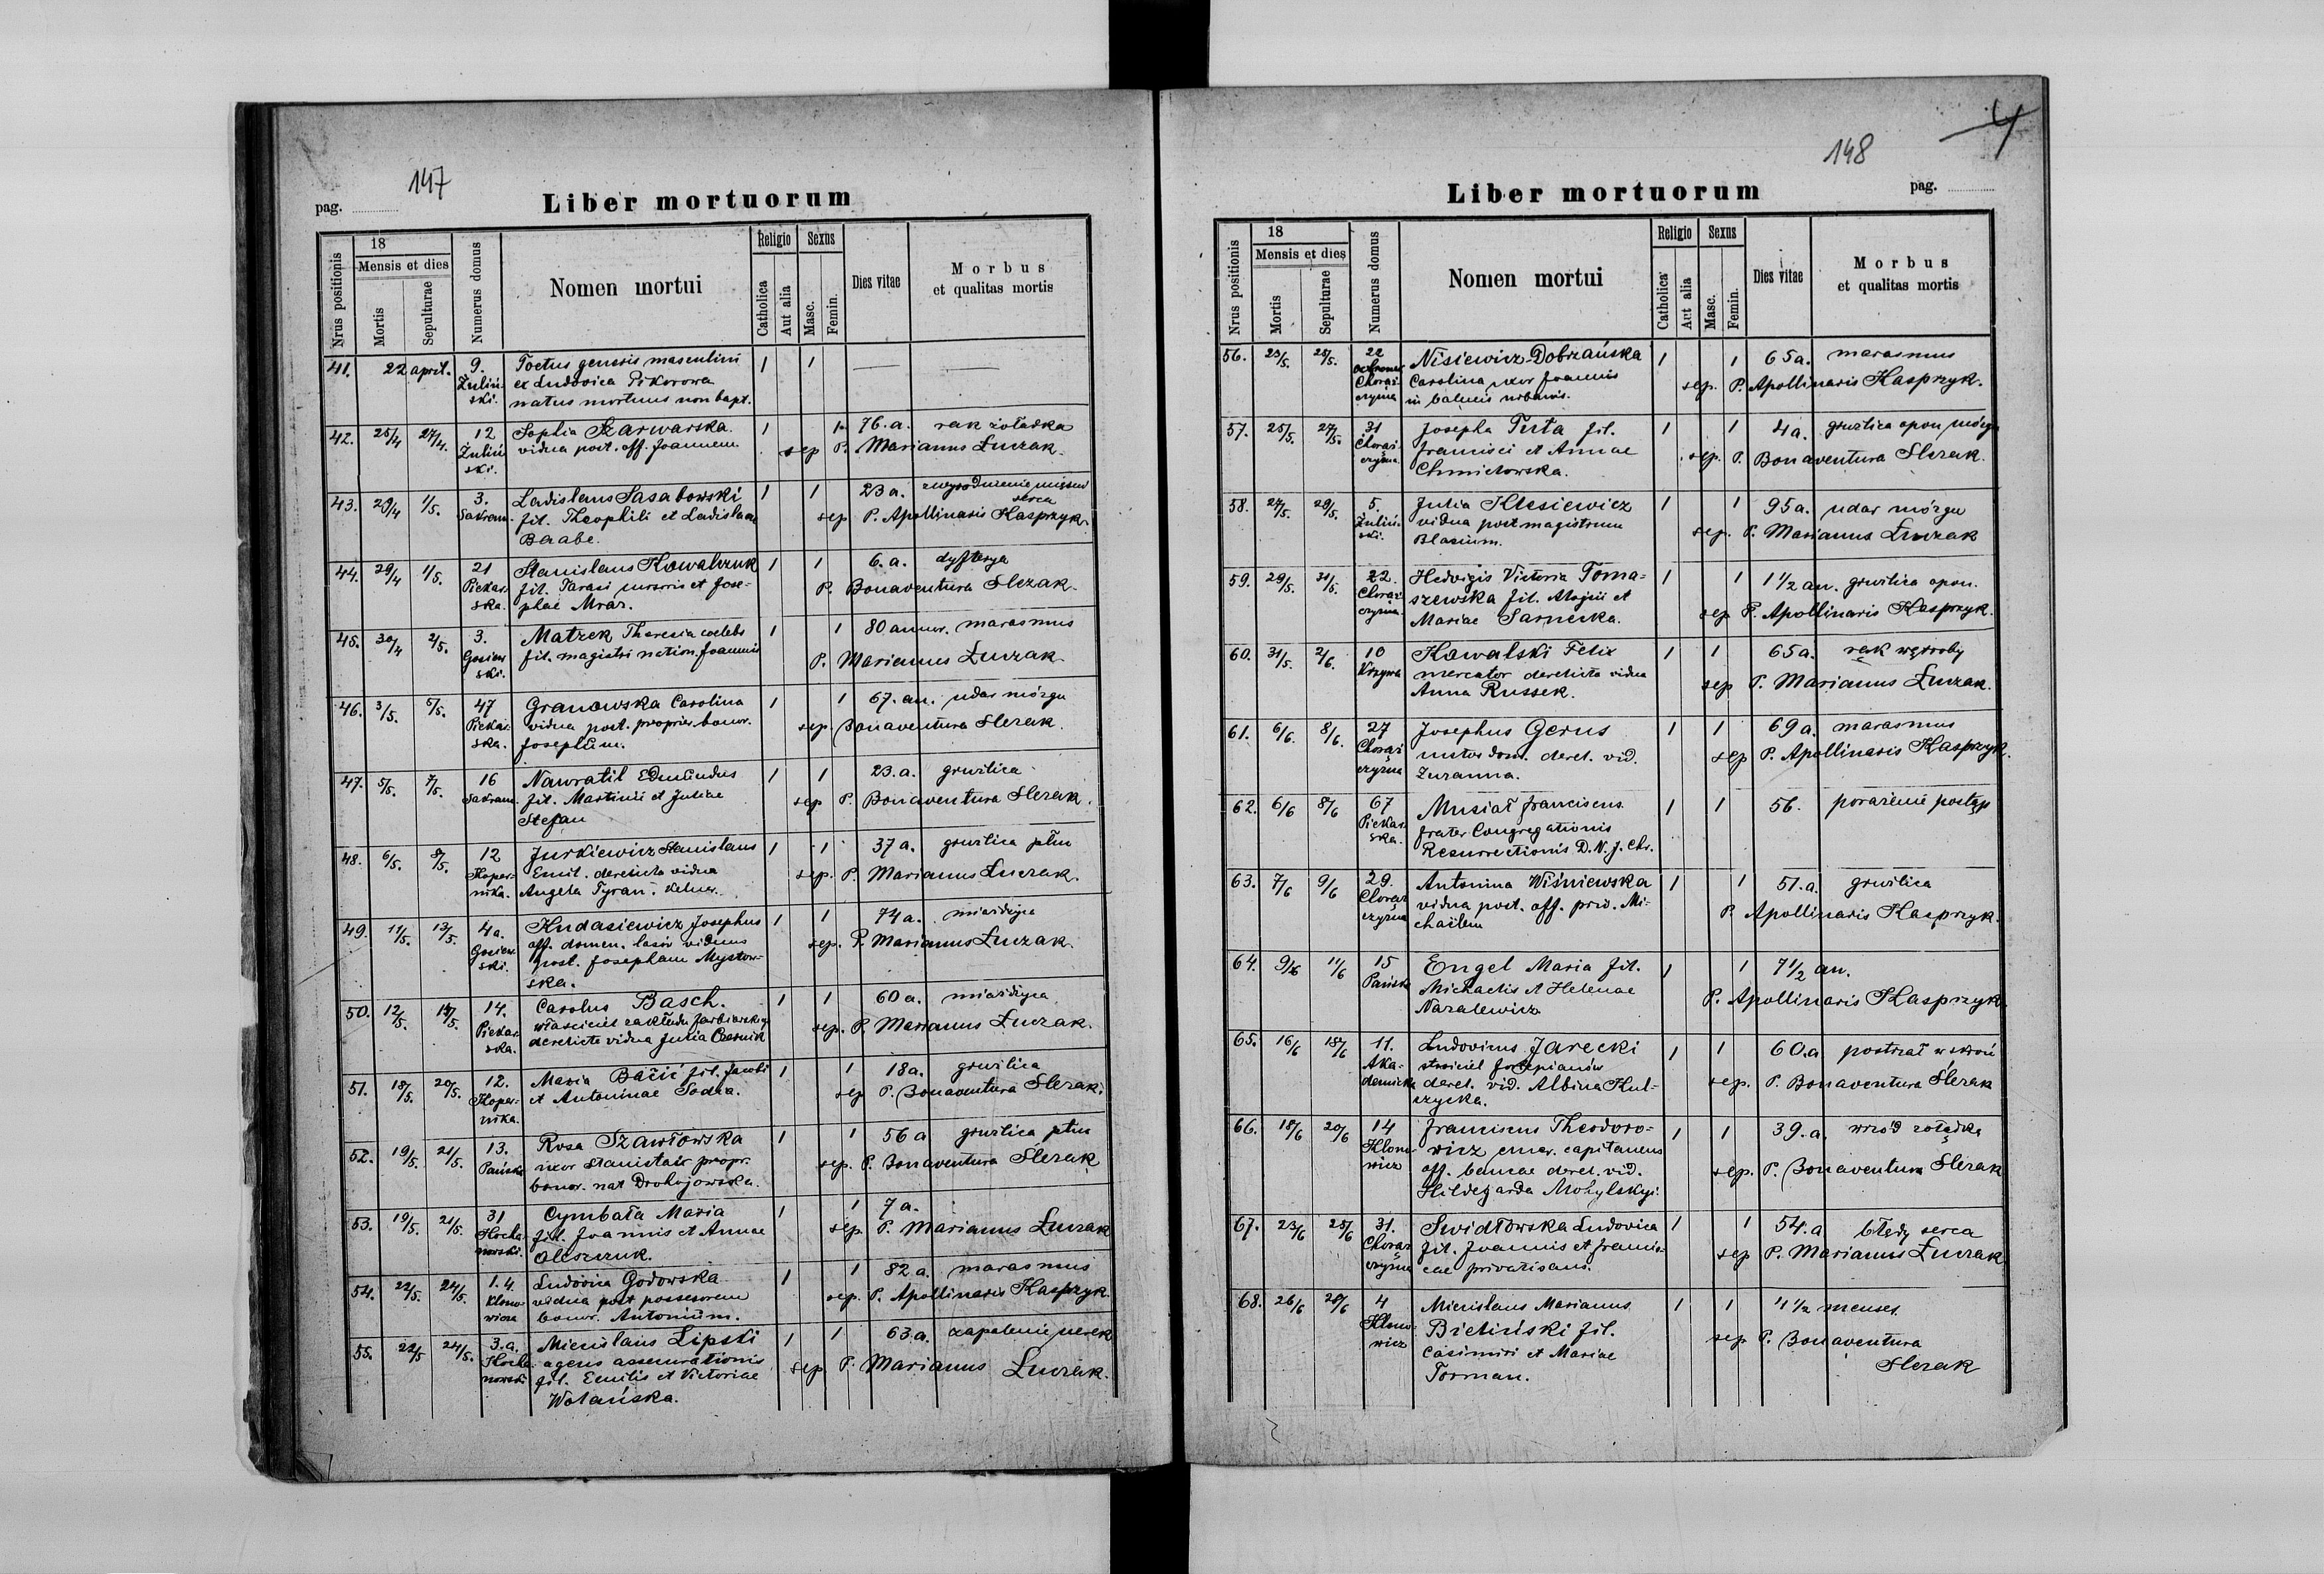 147
pag.
Liber mortuorum
Nrus positionis
18
Mensis et dies
Mortis
Sepulturae
Numerus domus
Nomen mortui
Religio
Catholica
Aut alia
Sexus
Masc.
Femin.
Dies vitae
Morbus
et qualitas mortis
41. 22 april. 9. Foetus generis masculini 1 1
Żuliń- ex Ludovica Pikorowa
ski. natus mortuus non bapt.
42. 25/4 27/4. 12 Sophia Szarwarska 1 1 76. a. rak żołądka
Żuliń vidua post. off. Joannem sep P. Marianus Łuczak.
ski.
43. 29/4 1/5. 3. Ladislaus Sasabowski 1 1 23 a. zwyrodnienie mięśnia
serca
Sakram. fil. Theophili et Ladislaae sep P. Apollinaris Kasprzyk.
Baabe.
44. 29/4 1/5. 21 Stanislaus Kowalczuk 1 1 6. a. dyfterya
Piekar- fil. Tarasi murarii et Jose- P. Bonaventura Slezak.
ska. phae Mraz.
45. 30/4 2/5. 3. Matzek Theresia coelebs 1 1 80 annor. marasmus
Gosiew fil. magistri nation. Joannis P. Marianus Łuczak
ski.
46. 3/5. 5/5. 47 Granowska Carolina 1 1 67. an. udar mózgu
Piekar- vidua post. propriet. bonor. sep. Bonaventura Slezak.
ska. Josephum.
47. 5/5. 7/5. 16 Nawratil Edmundus 1 1 23. a. gruźlica
Sakram. fil. Martinii et Juliae sep P. Bonaventura Slezak.
Stefan
48. 6/5. 8/5. 12 Jurkiewicz Stanislaus 1 1 37 a. gruźlica płuc
Koper- Emil. derelicta vidua sep. P. Marianus Łuczak.
nika. Angela Tyran. kelner.
49. 11/5. 13/5. 4a. Kudasiewicz Josephus 1 1 74 a. miażdżyca
Gosiew- off. domen. lasów viduus sep. P. Marianus Łuczak.
ski. post. Josepham Mysłow-
ska.
50. 12/5. 14/5. 14. Carolus Basch. 1 1 60 a. miażdżyca
Piekar- właściciel zakładu farbiarskiego sep. P. Marianus Łuczak.
ska. derelicta vidua Julia Czesnik
51. 18/5. 20/5. 12. Maria Bačić fil. Jacobi 1 1 18 a. gruźlica
Koper- et Antoninae Sodra. sep P. Bonaventura Slezak.
nika.
52. 19/5. 21/5. 13. Rosa Szawłowska 1 1 56 a gruźlica płuc
Pańska uxor Stanislai propr. sep. P. Bonaventura Slezak
bonor. nat Drohojowska.
53. 19/5. 21/5. 31 Cymbała Maria 1 1 7 a.
Kocha- fil. Joannis et Annae sep. P. Marianus Łuczak
nowski. Oleszczuk.
54. 22/5. 24/5. 1.4. Ludovica Godowska 1 1 82 a. marasmus
Klono- vidua post possesorem sep. P. Apollinaris Kasprzyk.
wicza bonor. Antonium.
55. 22/5 24/5. 3.a. Miecislaus Lipski 1 1 63. a. zapalenie nerek
Kocha- agens assecurationis sep P. Marianus Łuczak.
nowski fil. Emilis et Victoriae
Wolańska.
148
Liber mortuorum
pag.
Nrus positionis
18
Mensis et dies
Mortis
Sepulturae
Numerus domus
Nomen mortui
Religio
Catholica
Aut alia
Sexus
Masc.
Femin.
Dies vitae
Morbus
et qualitas mortis
56. 23/5. 25/5. 22 Nisiewicz-Dobrzańska 1 1 65 a. marasmus
Chorąż- Carolina uxor Joannis sep. P. Apollinaris Kasprzyk.
czyzna in balneis urbanis.
57. 25/5. 27/5. 31 Josepha Pirta fil. 1 1 4 a. gruźlica opon mózg.
Chorąż- Francisci et Annae sep. P. Bonaventura Slezak.
czyzna. Chmielowska.
58. 27/5. 29/5. 5. Julia Klesiewicz 1 1 95 a. udar mózgu
Żuliń- vidua post magistrum sep. P. Marianus Łuczak
ski. Blasium.
59. 29/5. 31/5. 22. Hedvigis Victoria Toma- 1 1 1 1/2 an. gruźlica opon.
Chorąż- szewska fil. Aloysii et sep P. Apollinaris Kasprzyk.
czyzna. Mariae Sarnecka.
60. 31/5. 2/6. 10 Kowalski Felix 1 1 65 a. rak wątroby
Krzywa mercator derelicta vidua sep P. Marianus Łuczak.
Anna Russek.
61. 6/6. 8/6. 27 Josephus Gerus 1 1 69 a. marasmus
Chorąż- custos dom. derel. vid. sep P. Apollinaris Kasprzyk.
czyzna Zuzanna.
62. 6/6 8/6 67 Musiał Franciscus 1 1 56. porażenie postęp
Piekar- frater Congregationis
ska. Resurrectionis D. N. J. Chr.
63. 7/6 9/6 29. Antonina Wiśniewska 1 1 51. a. gruźlica
Chorąż- vidua post. off. priv. Mi- P. Apollinaris Kasprzyk.
czyzna chaëlem
64. 9/6 11/6 15 Engel Maria fil. 1 1 7 1/2 an.
Pańska Michaelis et Helenae P. Apollinaris Kasprzyk
Nazalewicz
65. 16/6 18/6 11. Ludovicus Jarecki 1 1 60. a postrzał w skroń
Aka- stroiciel fortepianów sep. P. Bonaventura Slezak
demicka derel. vid. Albina Kul-
czycka.
66. 18/6 20/6 14 Franciscus Theodoro- 1 1 39. a. wrzód żołądka
Klono- wicz emer. capitaneus sep. P. Bonaventura Slezak
wicz off. bancae derel. vid.
Hildegarda Mohylskyi.
67. 23/6 25/6 31. Swidłowska Ludovica 1 1 54. a błędy serca
Chorąż- fil. Joannis et Francis- sep P. Marianus Łuczak
czyzna cae privatisans.
68. 26/6 28/6 4 Miecislaus Marianus 1 1 4 1/2 menses.
Klono- Bieliński fil. sep P. Bonaventura
wicz Casimiri et Mariae Slezak
Torman.